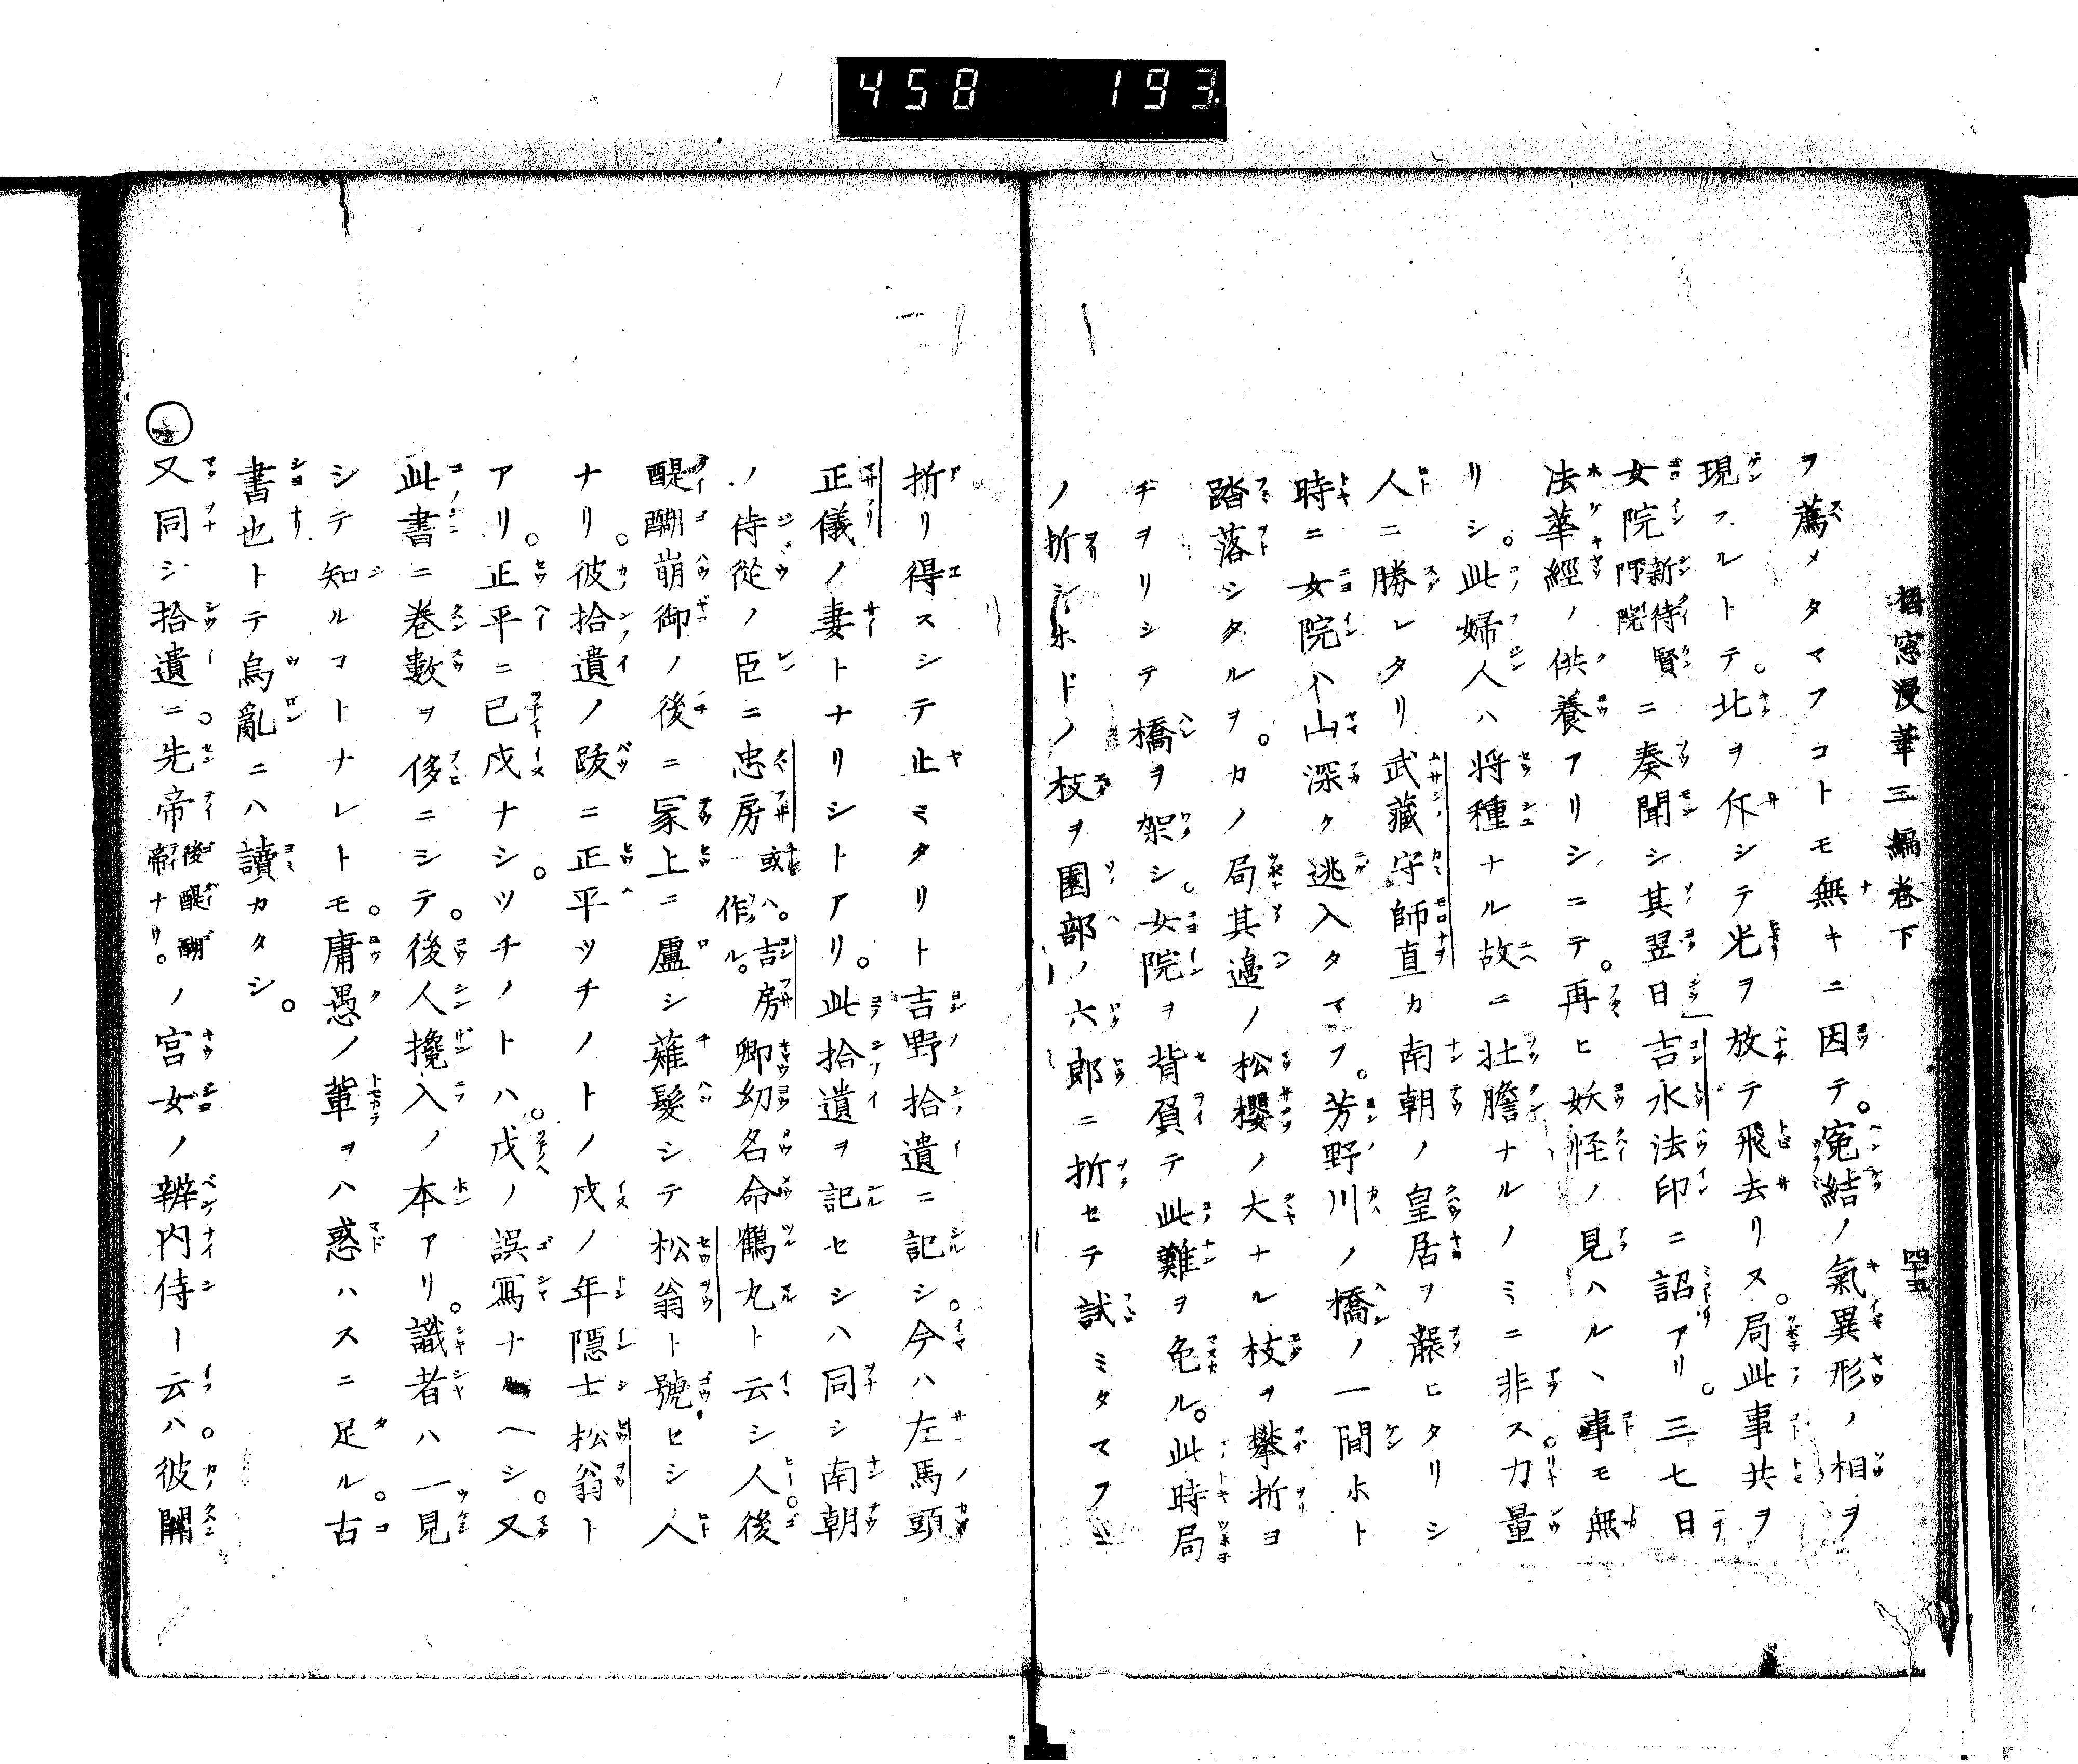 458 193
梧窓漫筆三編卷下 四十五
ヲ薦メタマフコトモ無キニ因テ。寃結ノ氣異形ノ相ヲ
現フルトテ。北ヲ斥シテ光ヲ放テ飛去リヌ。局此事共ヲ
女院新待賢門院ニ奏聞シ其翌日」吉水法印ニ詔アリ。三七日
法華經ノ供養アリシニテ。再ヒ妖怪ノ見ハルヽ事モ無
リシ。此婦人ハ将種ナル故ニ壮膽ナルノミニ非ス力量
人ニ勝レタリ武藏守師直カ南朝ノ皇居ヲ襲ヒタリシ
時ニ女院ハ山深ク逃入タマフ。芳野川ノ橋ノ一間ホト
踏落シタルヲ。カノ局其邉ノ松櫻ノ大ナル枝ヲ攀折ヨ
チヲリシテ橋ヲ架シ。女院ヲ背負テ此難ヲ免ル。此時局
ノ折シホドノ枝ヲ園部ノ六郎ニ折セテ試ミタマフニ
折リ得スシテ止ミタリト吉野拾遺ニ記シ。今ハ左馬頭
正儀ノ妻トナリシトアリ。此拾遺ヲ記セシハ同シ南朝
ノ侍從ノ臣ニ忠房或ハ。吉房作ル。卿幼名命鶴丸ト云シ人後
醍醐崩御ノ後ニ冢上ニ廬シ薙髮シテ松翁ト號セシ人
ナリ。彼拾遺ノ跋ニ正平ツチノトノ戌ノ年隱士松翁ト
アリ。正平ニ已戌ナシ。ツチノトハ。戊ノ誤寫ナルヘシ。又
此書ニ巻數ヲ侈ニシテ。後人攙入ノ本アリ。識者ハ一見
シテ知ルコトナレトモ。庸愚ノ輩ヲハ惑ハスニ足ル。古
書也トテ烏亂ニハ讀カタシ。
又同シ拾遺ニ。先帝後醍醐帝ナリ。ノ宮女ノ辨内侍ト云ハ。彼關